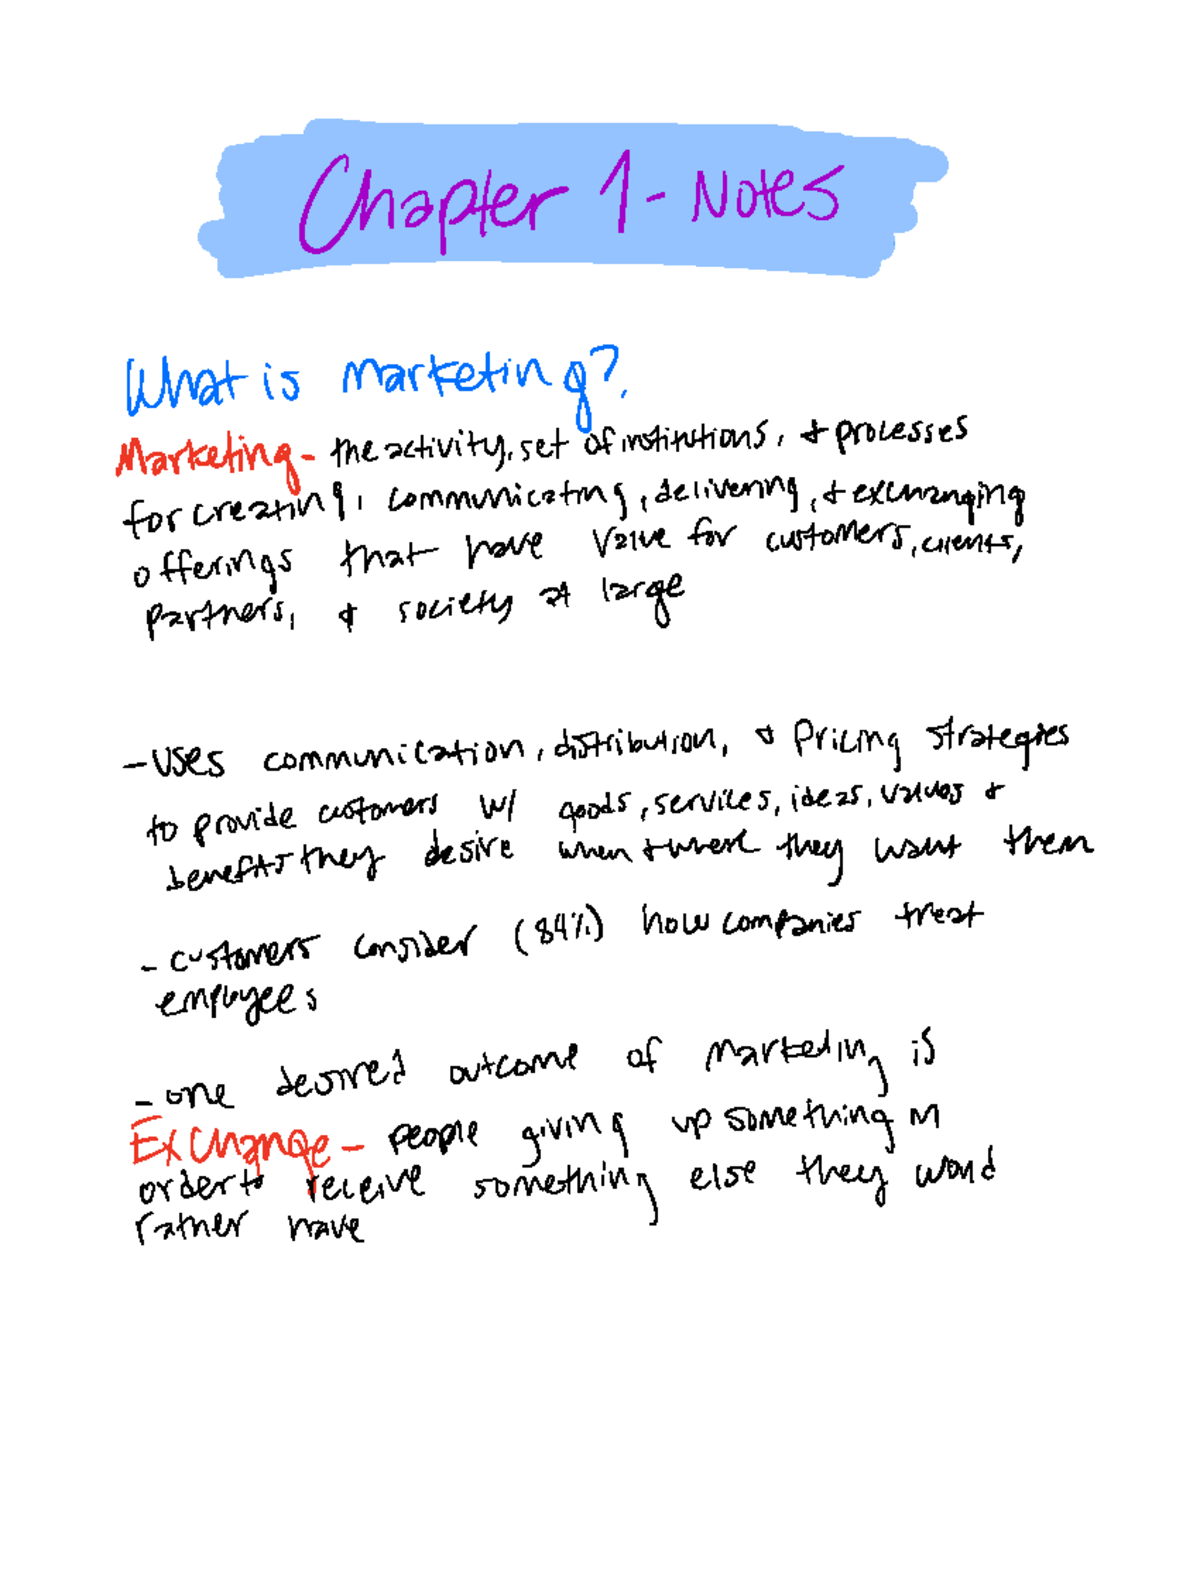 Chapter 1 - Notes
What is marketing?
Marketing - the activity, set of institutions, & processes
for creating, communicating, delivering, & exchanging
offerings that have value for customers, clients,
partners, & society at large
- Uses communication, distribution, & Pricing strategies
to provide customers w/ goods, services, ideas, values &
benefits they desire when & where they want them
- customers consider (84%) how companies treat
employees
- one desired outcome of marketing is
Exchange - people giving up something in
order to receive something else they would
rather have